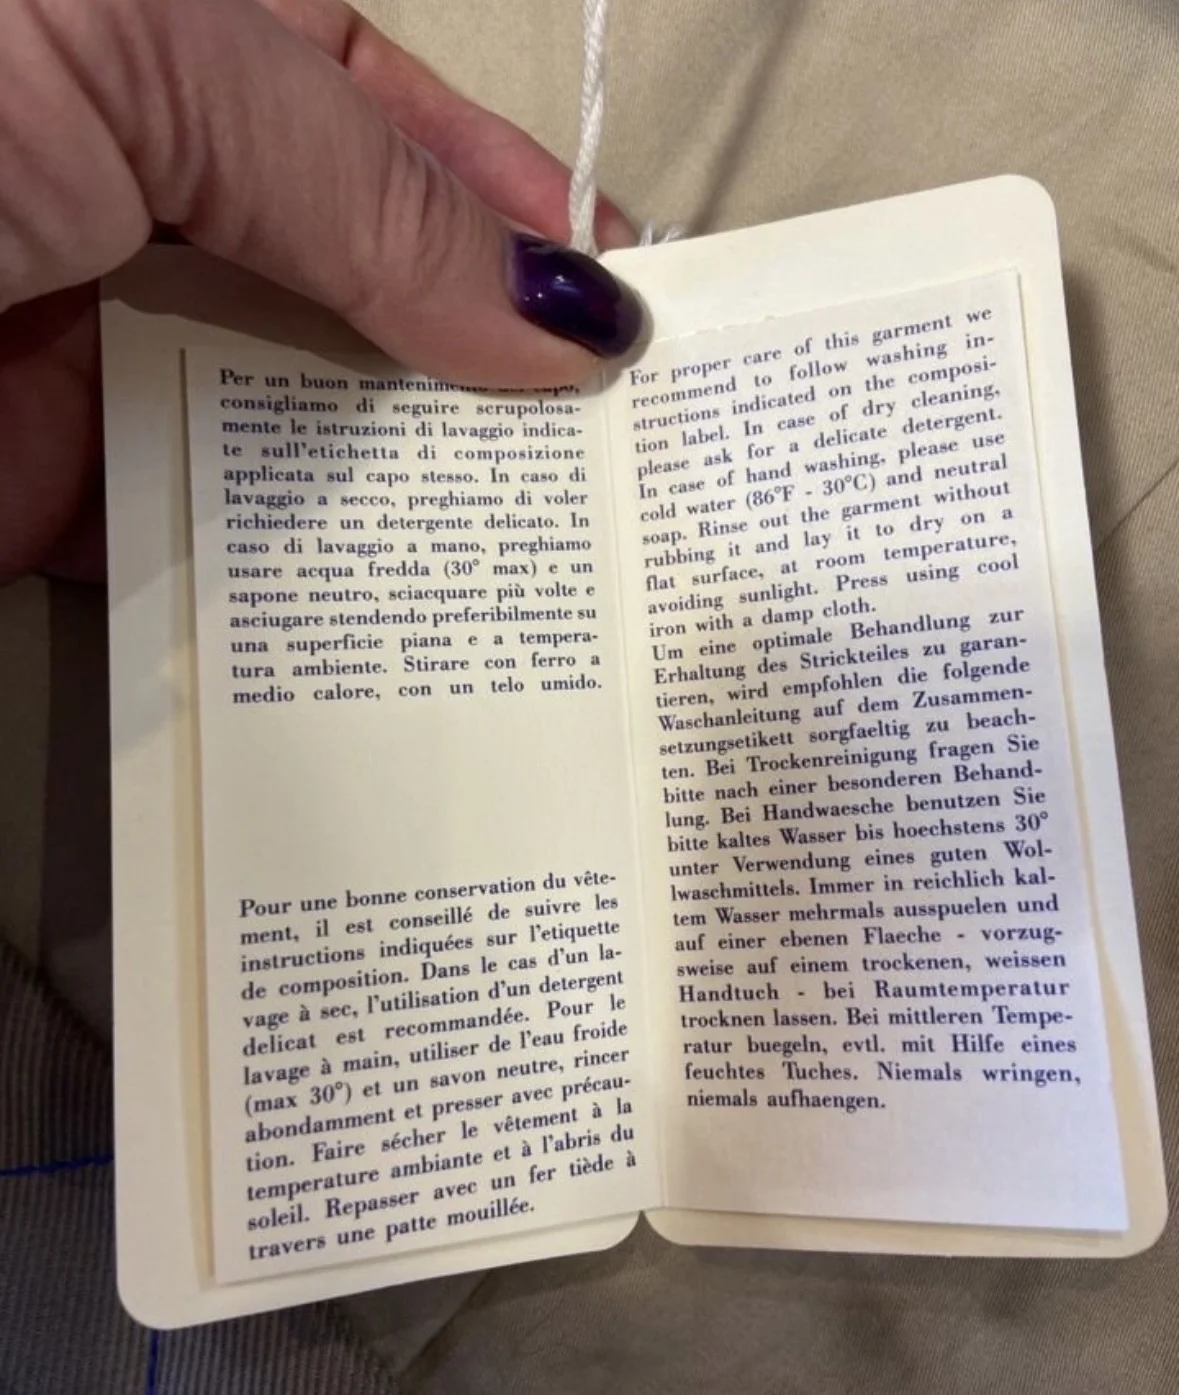 Per un buon
consigliamo di seguire scrupolosa-
mente le istruzioni di lavaggio indica-
te sull'etichetta di composizione
applicata sul capo stesso. In caso di
lavaggio a secco, preghiamo di voler
richiedere un detergente delicato. In
caso di lavaggio a mano, preghiamo
usare acqua fredda (30° max) e un
sapone neutro, sciacquare più volte e
asciugare stendendo preferibilmente su
una superficie piana e a tempera-
tura ambiente. Stirare con ferro a
medio calore, con un telo umido.
Pour une bonne conservation du vête-
ment, il est conseillé de suivre les
instructions indiquées sur l'etiquette
de composition. Dans le cas d'un la-
vage à sec, l'utilisation d'un detergent
delicat est recommandée. Pour le
lavage à main, utiliser de l'eau froide
(max 30°) et un savon neutre, rincer
abondamment et presser avec précau-
tion. Faire sécher le vêtement à la
temperature ambiante et à l'abris du
soleil. Repasser avec un fer tiède à
travers une patte mouillée.
For proper care of this garment we
recommend to follow washing in-
structions indicated on the composi-
tion label. In case of dry cleaning,
please ask for a delicate detergent.
In case of hand washing, please use
cold water (86°F - 30°C) and neutral
soap. Rinse out the garment without
rubbing it and lay it to dry on a
flat surface, at room temperature,
avoiding sunlight. Press using cool
iron with a damp cloth.
Um eine optimale Behandlung zur
Erhaltung des Strickteiles zu garan-
tieren, wird empfohlen die folgende
Waschanleitung auf dem Zusammen-
setzungsetikett sorgfaeltig zu beach-
ten. Bei Trockenreinigung fragen Sie
bitte nach einer besonderen Behand-
lung. Bei Handwaesche benutzen Sie
bitte kaltes Wasser bis hoechstens 30°
unter Verwendung eines guten Wol-
lwaschmittels. Immer in reichlich kal-
tem Wasser mehrmals ausspuelen und
auf einer ebenen Flaeche - vorzug-
sweise auf einem trockenen, weissen
Handtuch - bei Raumtemperatur
trocknen lassen. Bei mittleren Tempe-
ratur buegeln, evtl. mit Hilfe eines
feuchtes Tuches. Niemals wringen,
niemals aufhaengen.